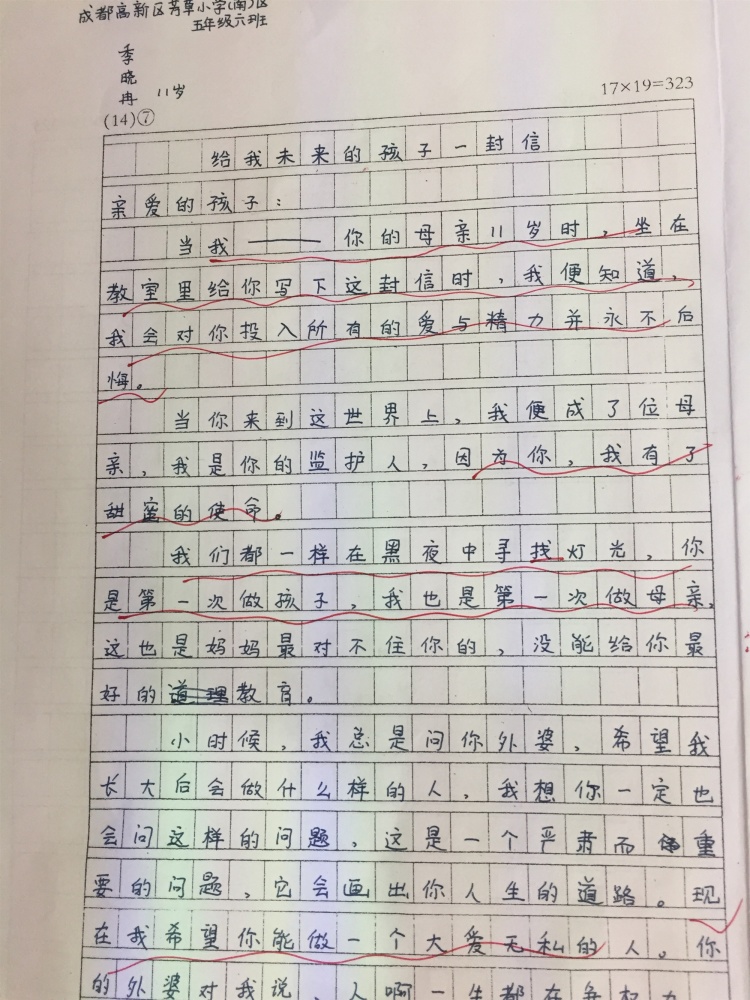 成都高新区芳草小学(南)区
五年级六班
季晓冉 11岁
17×19=323
(14)⑦
给我未来的孩子一封信
亲爱的孩子：
当我——你的母亲11岁时，坐在
教室里给你写下这封信时，我便知道，
我会对你投入所有的爱与精力并永不后
悔。
当你来到这世界上，我便成了位母
亲，我是你的监护人，因为你，我有了
甜蜜的使命。
我们都一样在黑夜中寻找灯光，你
是第一次做孩子，我也是第一次做母亲，
这也是妈妈最对不住你的，没能给你最
好的道理教育。
小时候，我总是问你外婆，希望我
长大后会做什么样的人，我想你一定也
会问这样的问题，这是一个严肃而重
要的问题，它会画出你人生的道路。现
在我希望你能做一个大爱无私的人。你
的外婆对我说，人啊一生都在争